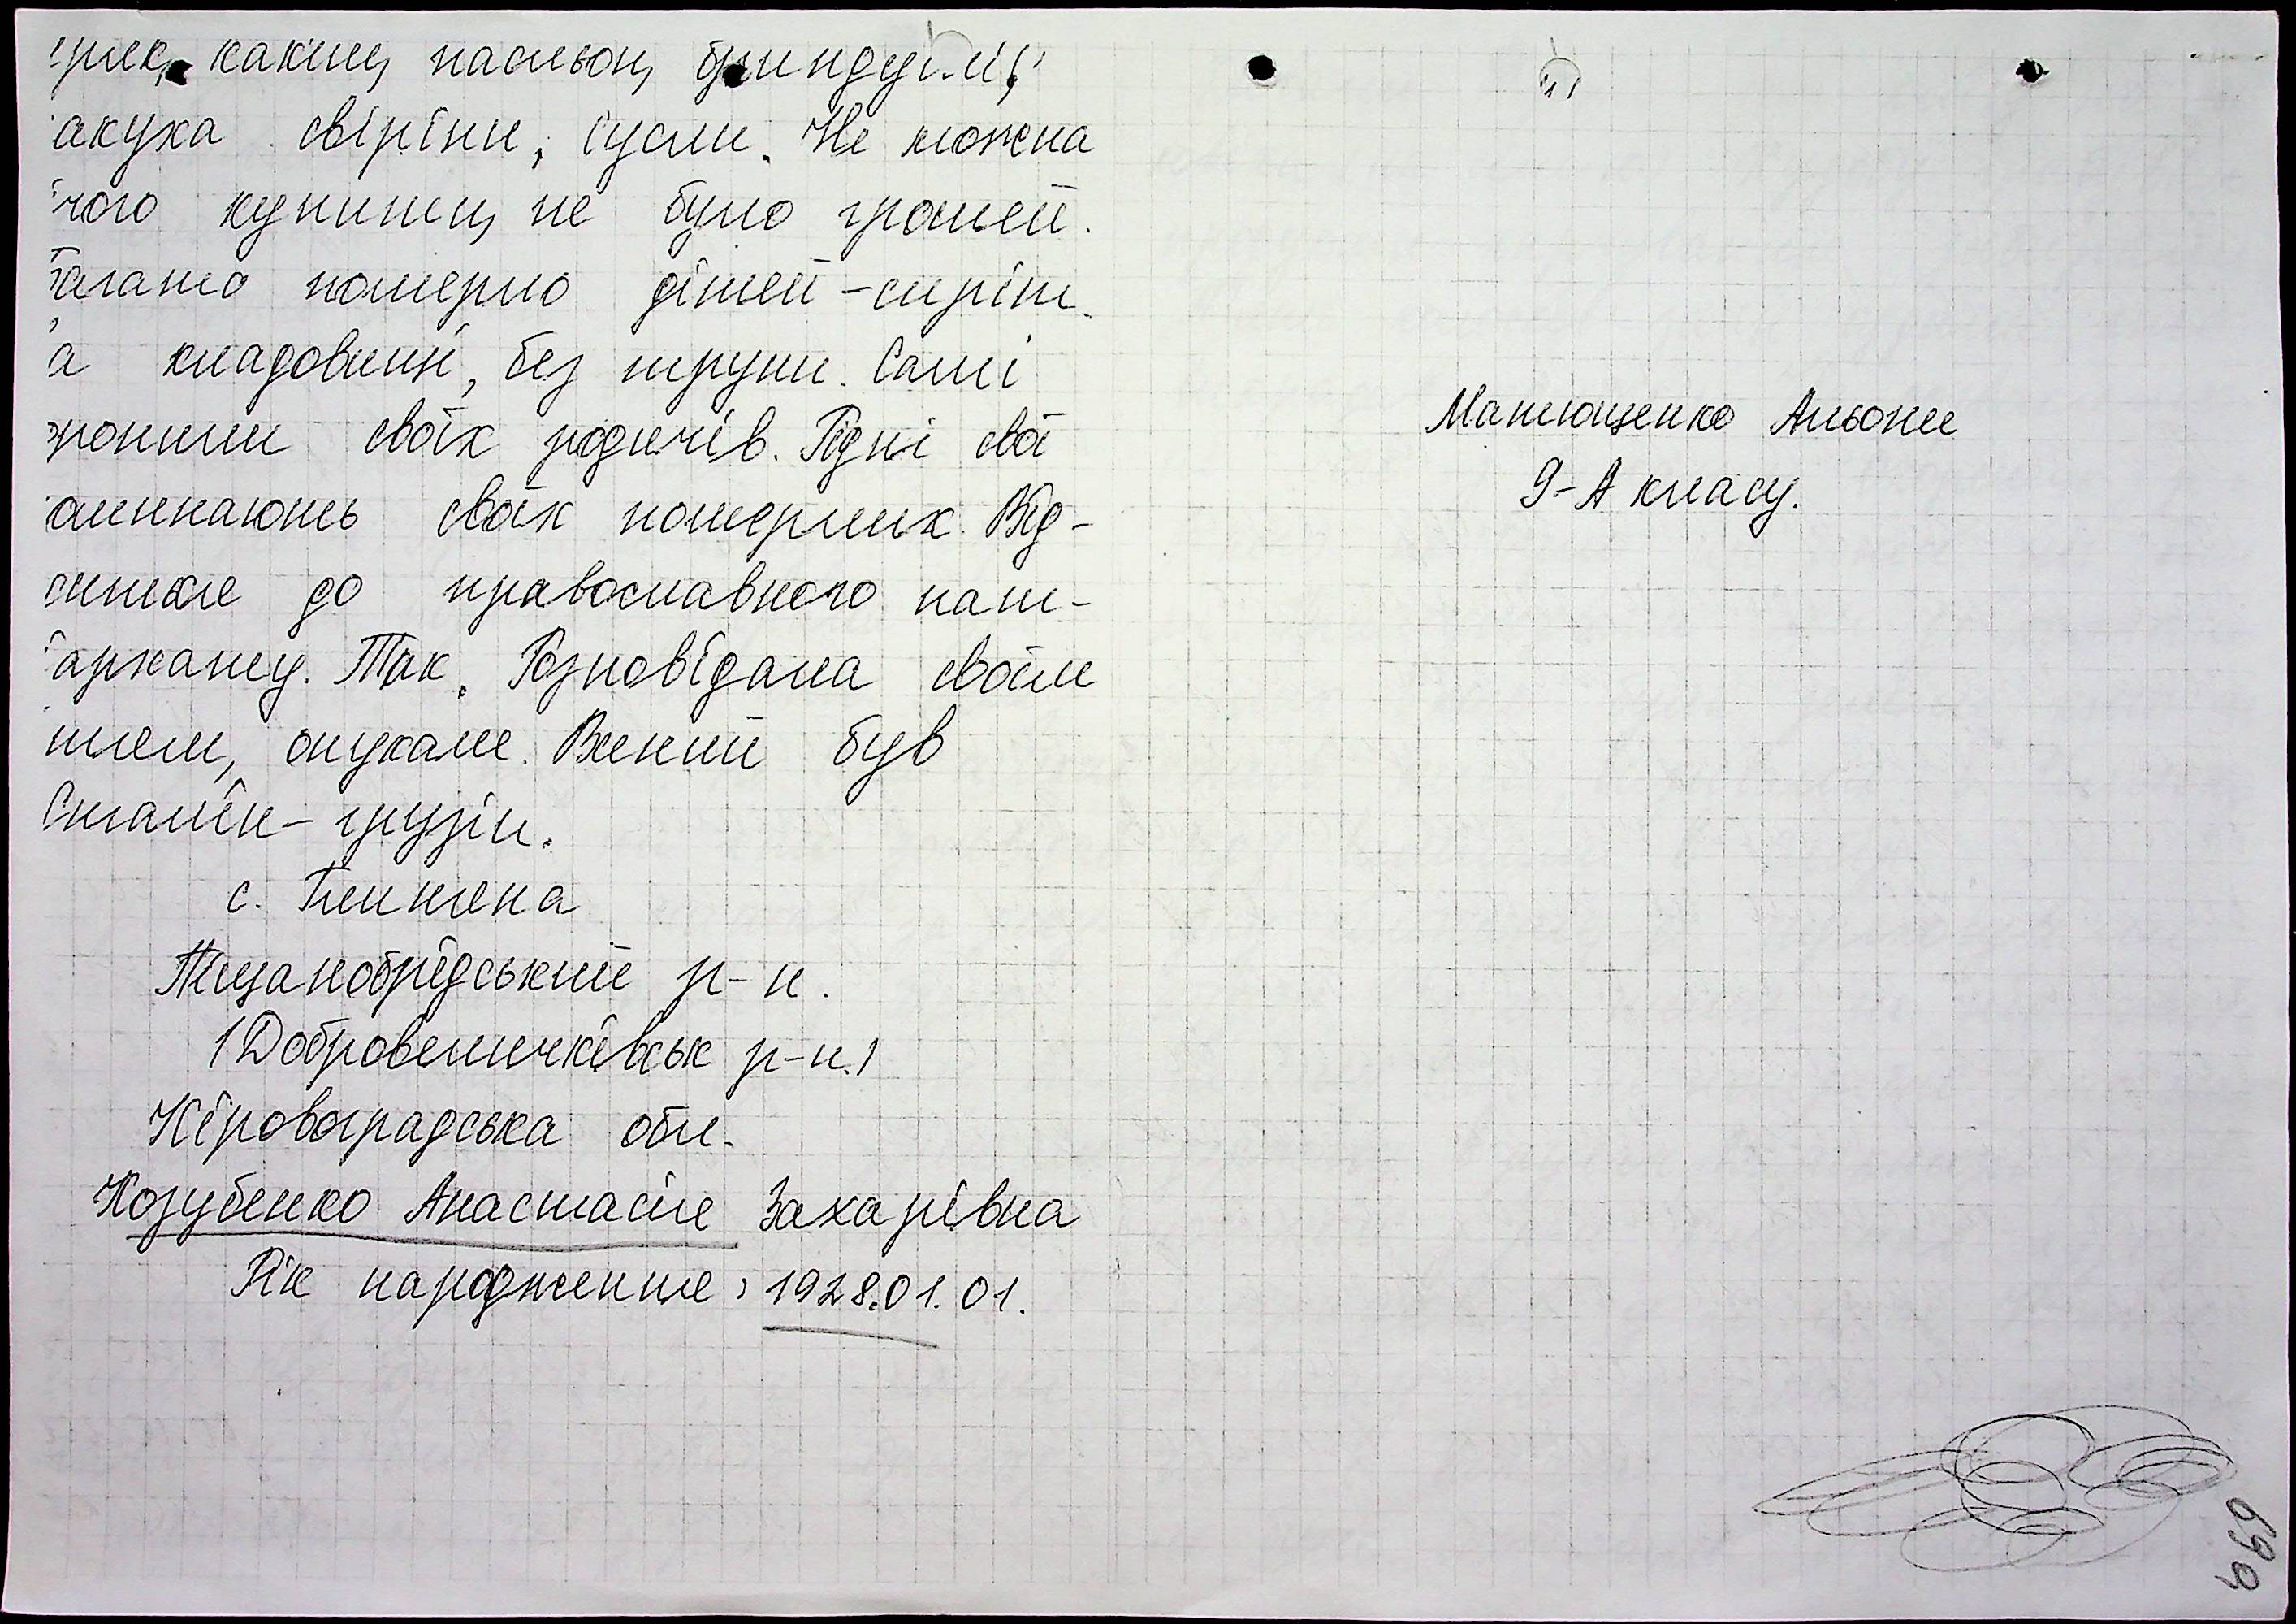 цик, качиц, пасльон, бриндулі,
акуха свіріпи, гусли. Не можна
чого купити, не було грошей.
Багато померло дітей-сиріт.
а кладовищі, без труни. Самі
ронили своїх родичів. Рідні свої
оминають своїх померлих. Від-
ситься до православного пат-
іархату. Так. Розповідала своїм
ітям, онукам. Винний був
Сталін - грузін.
с.
Піщанобрідський р-н.
(Добровеличківськ р-н.)
Кіровоградська обл.
Козубенко Анастасія Захарівна
Рік народження: 1928.01.01.
Матющенко Альони
9-А класу.
699